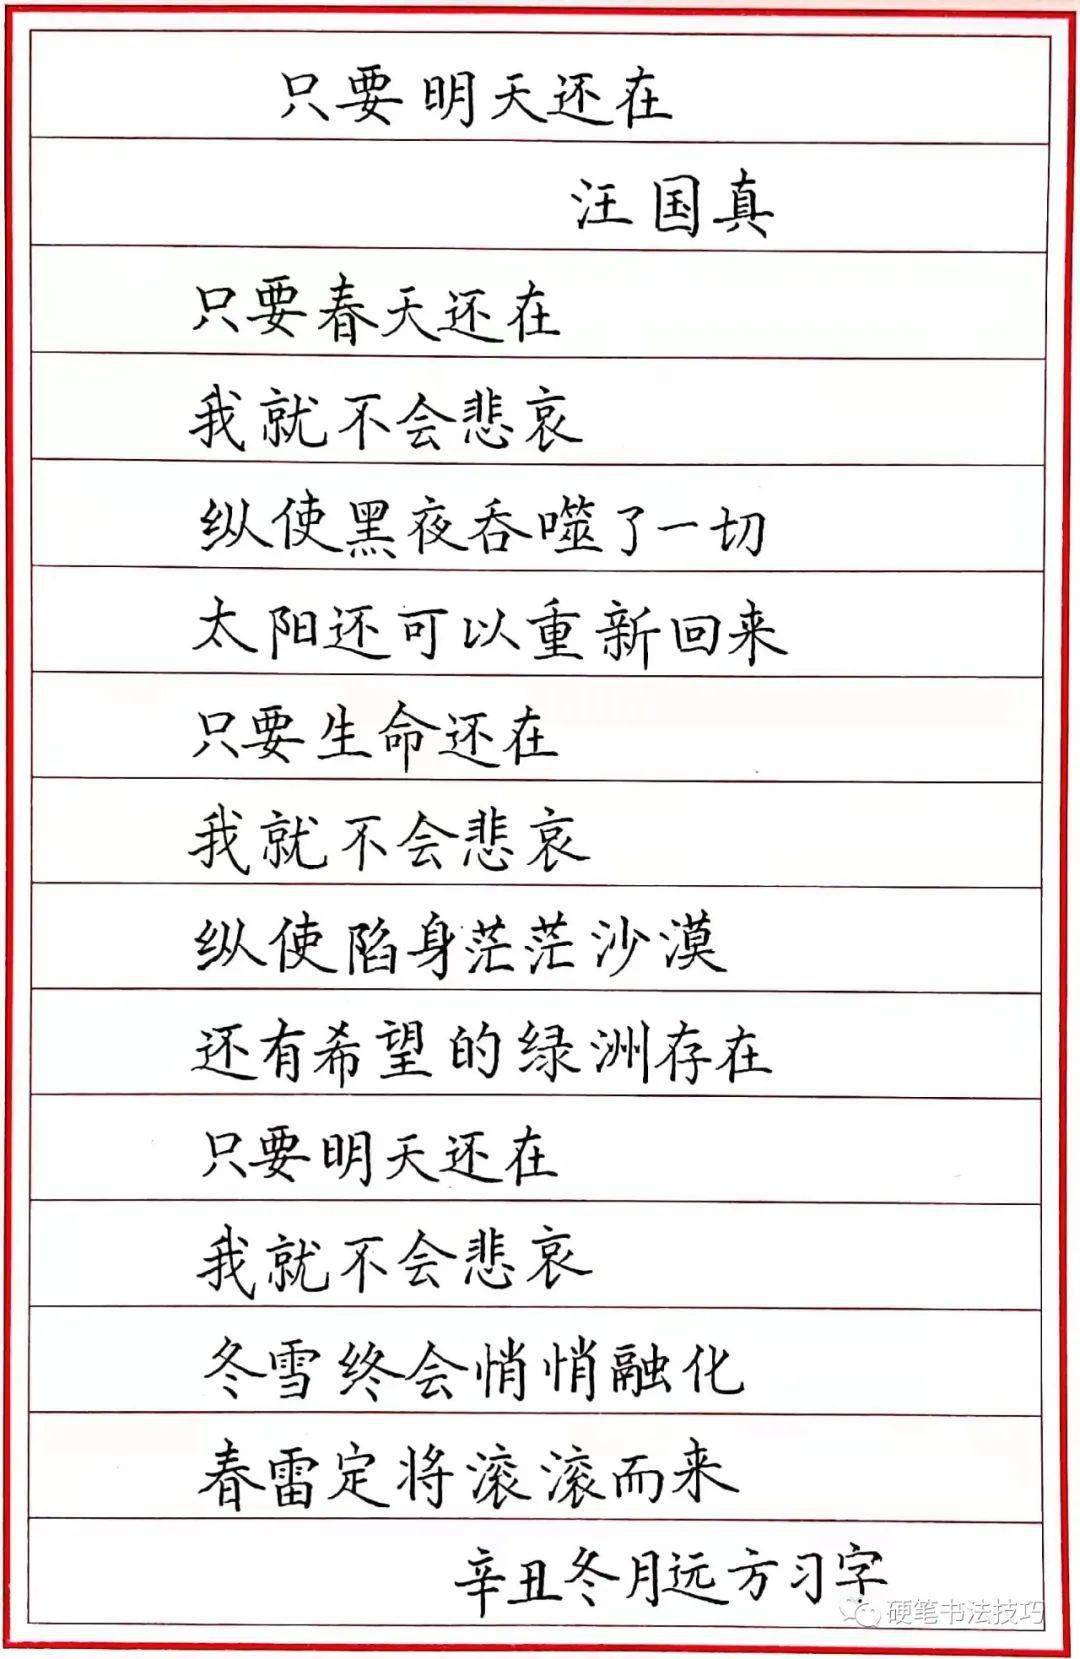 只要明天还在
汪国真
只要春天还在
我就不会悲哀
纵使黑夜吞噬了一切
太阳还可以重新回来
只要生命还在
我就不会悲哀
纵使陷身茫茫沙漠
还有希望的绿洲存在
只要明天还在
我就不会悲哀
冬雪终会悄悄融化
春雷定将滚滚而来
辛丑冬月远方习字
硬笔书法技巧